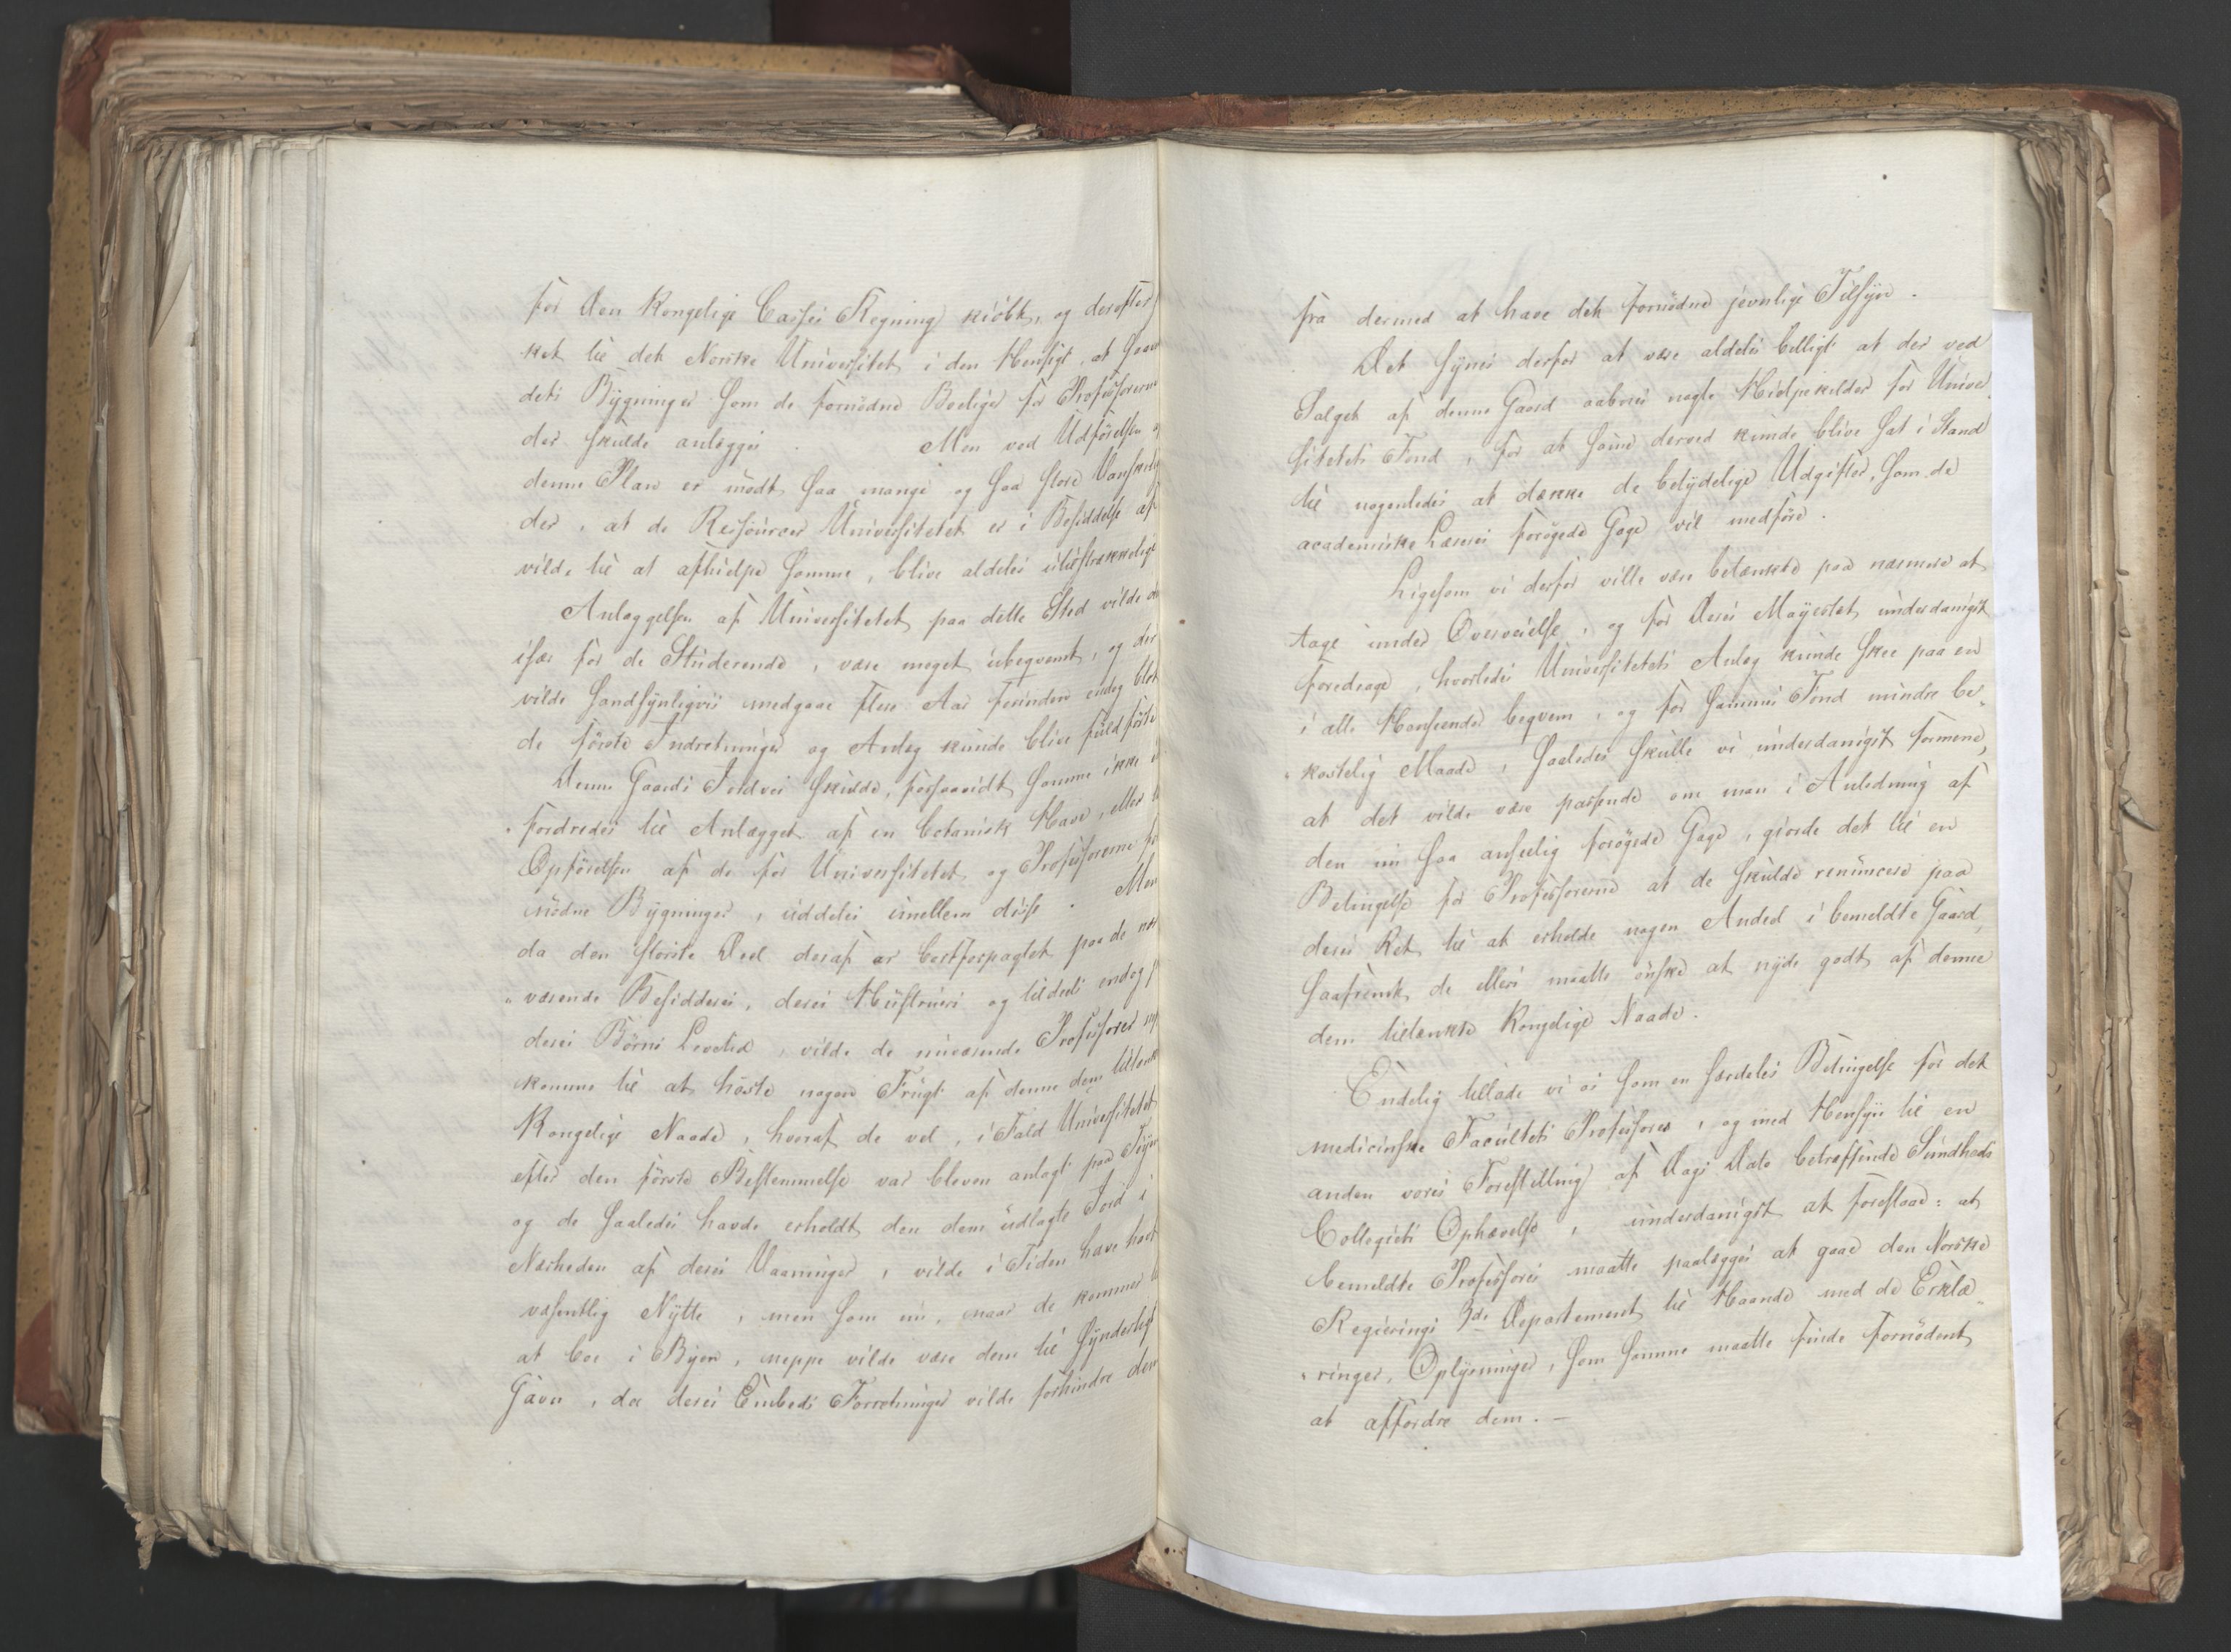 for den Kongelige Casses Regning kiöbt, og derefter
ket til det Norske Universitet i den Hensigt, at Gaar
dets Bygninger som de fornödne Boeliger for Professorerne
der skulde anlægges. Men ved Udförelsen
denne Plan er mödt saa mange og saa store Vanskelig
der, at de Ressourcer Universitetet er i Besiddelse af
vilde til at afhielpe samme, blive aldeles utilstrækkelige
Anlæggelsen af Universitetet paa dette Sted vilde
især for de Studerende, være meget ubeqvemt, og der
vilde sandsynligviis medgaae flere Aar forinden endog blot
de förste Indretninger og Anlæg kunde blive fuldförte
Denne Gaards Jordvei skulde, forsaavidt samme ikke
fordredes til Anlægget af en botanisk Have, eller
Opförelsen af de for Universitetet og Professorerne
nödne Bygninger, uddeles imellem disse. Men
da den störste Deel deraf er bortforpagtet paa de
værende Besidderes, deres Hustruers og tildeels endog
deres Börns Levetid, vilde de nuværende Professorer
komme til at höste nogen Frugt af denne dem tiltænk
Kongelige Naade, hvoraf de vel, i Fald Universitetet
efter den förste Bestemmelse var bleven anlagt paa Töjen
og de saaledes havde erholdt den dem udlagte Jord i
Nærheden af deres Vaaninger, vilde i Tiden have havt
væsentlig Nytte, men som nu, naar de kommer
at boe i Byen, neppe vilde være dem til synderligt
Gavn, da deres Embeds Forretninger vilde forhindre dem
fra dermed at have det fornödne jevnlige Tilsyn.
Det synes derfor at være aldeles billigt at der ved
Salget af denne Gaard aabnes nogle Hielpekilder for Univer
sitetets Fond, for at samme derved kunde blive sat i Stand
til nogenledes at dække de betydelige Udgifter, som de
academiske Læreres forögede Gage vil medföre.
Ligesom vi derfor ville være betænkte paa nærmere at
tage under Overveielse, og for Deres Mayestet underdanigst
foredrage, hvorledes Universitetets Anlæg kunde skee paa en
i alle Henseender beqvem, og for sammes Fond mindre be„
„kostelig Maade, saaledes skulle vi underdanigst formene,
at det vilde være passende om man i Anledning af
den nu saa anseelig forögede Gage, giorde det til en
Betingelse for Professorerne at de skulde renuncere paa
deres Ret til at erholde nogen Andeel i bemeldte Gaard,
saafremt de ellers maatte önske at nyde godt af denne
dem tiltænkte Kongelige Naade.
Endelig tillade vi os som en særdeles Betingelse for det
medicinske Facultets Professorer, og med Hensyn til en
anden vores Forestilling af Dags Dato betræffende Sundheds
Collegiets Ophævelse, underdanigst at foreslaae: at
bemeldte Professores maatte paalægges at gaae den Norske
Regierings 3de Departement til Haande med de Erklæ„
„ringer, Oplysninger, som samme maatte finde fornödent
at affordre dem. —